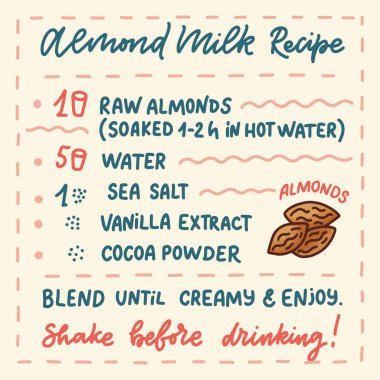 Almond Milk Recipe
1 RAW ALMONDS
(SOAKED 1-2 h IN HOT WATER)
5 WATER
1 SEA SALT
ALMONDS
VANILLA EXTRACT
COCOA POWDER
BLEND UNTIL CREAMY & ENJOY.
Shake before drinking!